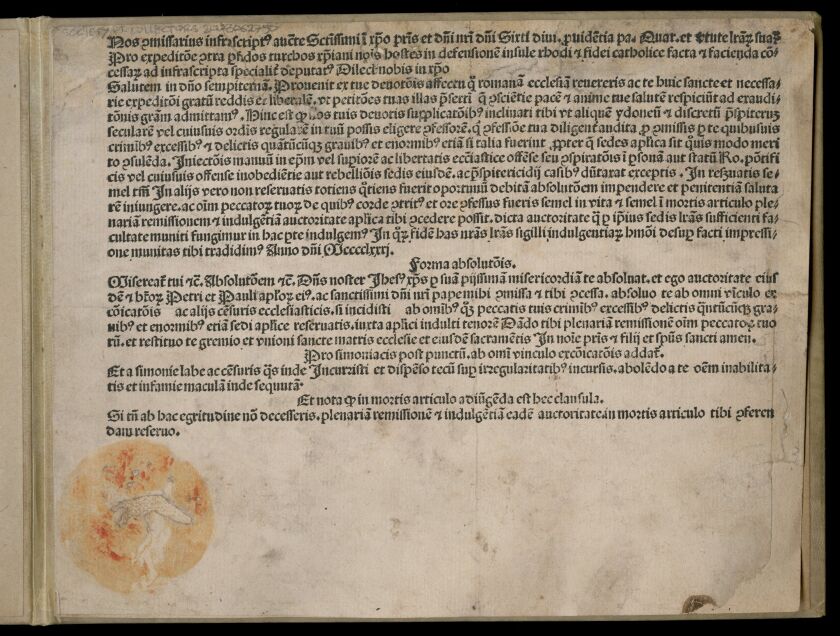 Nos ꝯmissarius infrascriptꝰ auctẽ Sctissimi ĩ xp̃o pr̃is et dñi nr̃i dñi Sixti diui. ꝓuidẽtia pa. Quar. et ꝟtute lr̃aꝝ suaꝝ
Pro expeditõe ꝯtra ꝑfidos turchos xp̃iani nois hostes in defensionẽ insule rhodi ⁊ fidei catholice facta ⁊ facienda cõ-
cessaꝝ ad infrascripta specialit̃ deputatꝰ Dilect nobis in xp̃o
Salutem in dño sempiternã. Prouenit ex tue deuotõis affectu ꝙ̃ romanã ecclesiã reuereris ac te huic sancte et necessa-
rie expeditõi gratũ reddis et liberalẽ. vt petitões tuas illas p̃serti q̃ ꝯscietie pacẽ ⁊ anime tue salutẽ respiciũt ad exaudi-
tõnis gram̃ admittamꝰ. Hinc est ꝙ nos tuis deuotis supplicatõibꝰ inclinati tibi vt aliquẽ ydoneũ ⁊ discretũ p̃spiteruꝫ
secularẽ vel cuiusuis ordĩs regularẽ in tuũ possis eligere ꝯfessorẽ. q̃ ꝯfessõe tua diligent̃ audita ꝓ ꝯmissis ꝑ te quibusuis
criminibꝰ excessibꝰ ⁊ delictis quãtũcũqꝫ grauibꝰ et enormibꝰ etiã si talia fuerint ꝓpter q̃ sedes aplica sit quis modo meri
to ꝯsulẽda. Iniectõis manuũ in ep̃m vel supiorẽ ac libertatis eccl̃iastice offẽse seu ꝯspiratõis ĩ ꝑsonã aut statũ Ro. põtifi
cis vel cuiusuis offense inobediẽtie aut rebelliõis sedis eiusdẽ. ac p̃spitericidij casibꝰ dũtaxat exceptis. In reẜuatis se-
mel tm̃ In alijs vero non reseruatis totiens q̃tiens fuerit oportunũ debitã absolutõem impendere et penitentiã saluta
rẽ iniungere. ac oĩm peccatoꝝ tuoꝝ de quibꝰ corde ꝯtritꝰ et ore ꝯfessus fueris semel in vita ⁊ semel ĩ mortis articulo ple-
nariã remissionem ⁊ indulgẽtiã auctoritate aplica tibi ꝯcedere possit. dicta auctoritate q̃ ꝑ ipius sedis lr̃as sufficienti fa-
cultate muniti fungimur in hac ꝑte indulgemꝰ In qꝝ̃ fidẽ has nr̃as lr̃as sigilli indulgentiaꝝ hmõi desuꝑ facti impressi-
one munitas tibi tradidimꝰ Anno dñi Mcccclxxxj.
Forma absolutõis.
Misereat̃ tui ⁊c̃. Absolutõem ⁊c̃. Dñs noster Ihesꝰ xp̃s ꝑ suã pijssimã misericordiã te absoluat. et ego auctoritate eius
dẽ ⁊ btõꝝ Petri et Pauli aploꝝ eiꝰ. ac sanctissimi dñi nr̃i pape mihi ꝯmissa ⁊ tibi ꝯcessa. absoluo te ab omni vĩculo ex
cõicatõis ac alijs cẽsuris ecclesiasticis. si incidisti ab oĩnibꝰ qꝫ peccatis tuis criĩnibꝰ excessibꝰ delictis q̃ntũcũqꝫ gra-
uibꝰ et enormibꝰ etiã sedi aplice reseruatis. iuxta aplici indulti tenorẽ Dãdo tibi plenariã remissionẽ oĩm peccatoꝝ tuo
rũ. et restituo te gremio et vnioni sancte matris ecclesie et eiusdẽ sacramẽtis In noĩe pr̃is ⁊ filij et sp̃us sancti amen.
Pro simoniacis post punctũ. ab omĩ vinculo excõicatõis addat̃.
Et a simonie labe ac cẽsuris q̃s inde Incurristi et dispẽso tecũ suꝑ irregularitatibꝰ incursis. abolẽdo a te oẽm inabilita-
tis et infamie maculã inde sequutã
Et nota ꝙ in mortis articulo adiũgẽda est hec clausula.
Si tñ ab hac egritudine nõ decesseris. plenariã remissionẽ ⁊ indulgẽtiã eadẽ auctoritate in mortis articulo tibi ꝯferen
dam reseruo.